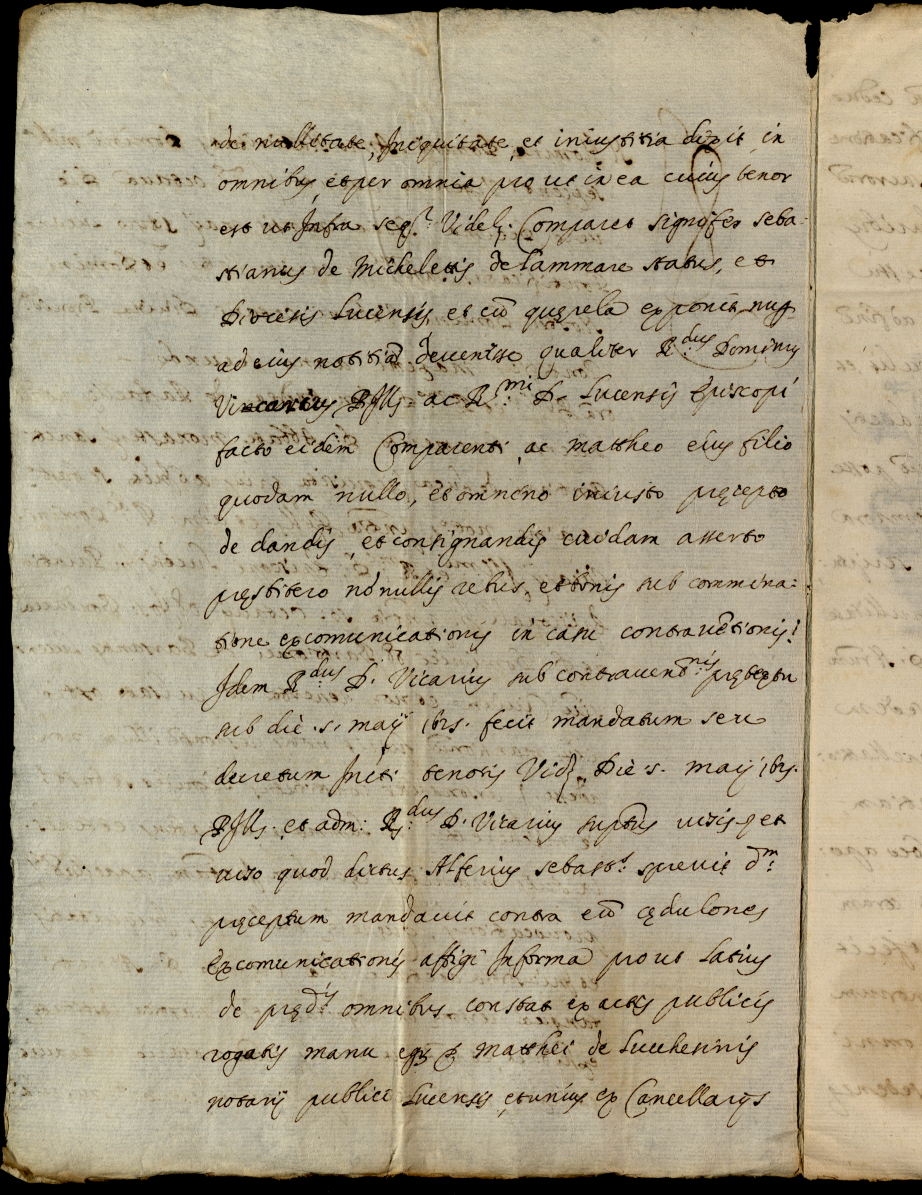 de nullitate, Iniquitate, et iniustitia dixit, in
omnibus, et per omnia prout in ea cuius tenor
est ut Infra seqr. Videlt. Comparet signifer seba-
stianus de Michelettis de Cammare status, et
Diocesis Lucensis, et cũ querela exponit, nup
ad eius notitiã devenisse qualiter Rdus Dominus
Vicarius PIlls. ac Rmi. D. Lucensis Episcopi
facto eidem Comparenti, ac mattheo eius filio
quodam nullo, et omnino iniusto pręcepto
de dandis, et consignandis cuidam asserto
pręsbitero nõnullis rebus, et bonis sub commina-
tione excomunicationis in casu contravẽtionis:
Idem Rdus D. Vicarius sub contravent.nis pretextu
sub die .5. maij 1615. fecit mandatum seu
decretum Infti. tenoris Vidz. Die .5. maij 1615.
PIlls. et adm: R.dus D. Vicarius suptus visis et
viso quod dictus Alferius sebast.s sprevit dm.
pręceptum mandavit contra eũ cędulones
excomunicationis affigi Informa prout Latius
de prędis. omnibus constat ex actis publicis
rogatis manu matthei de Lucchesinis
notarij publici Lucensis, et unius ex Cancellarijs